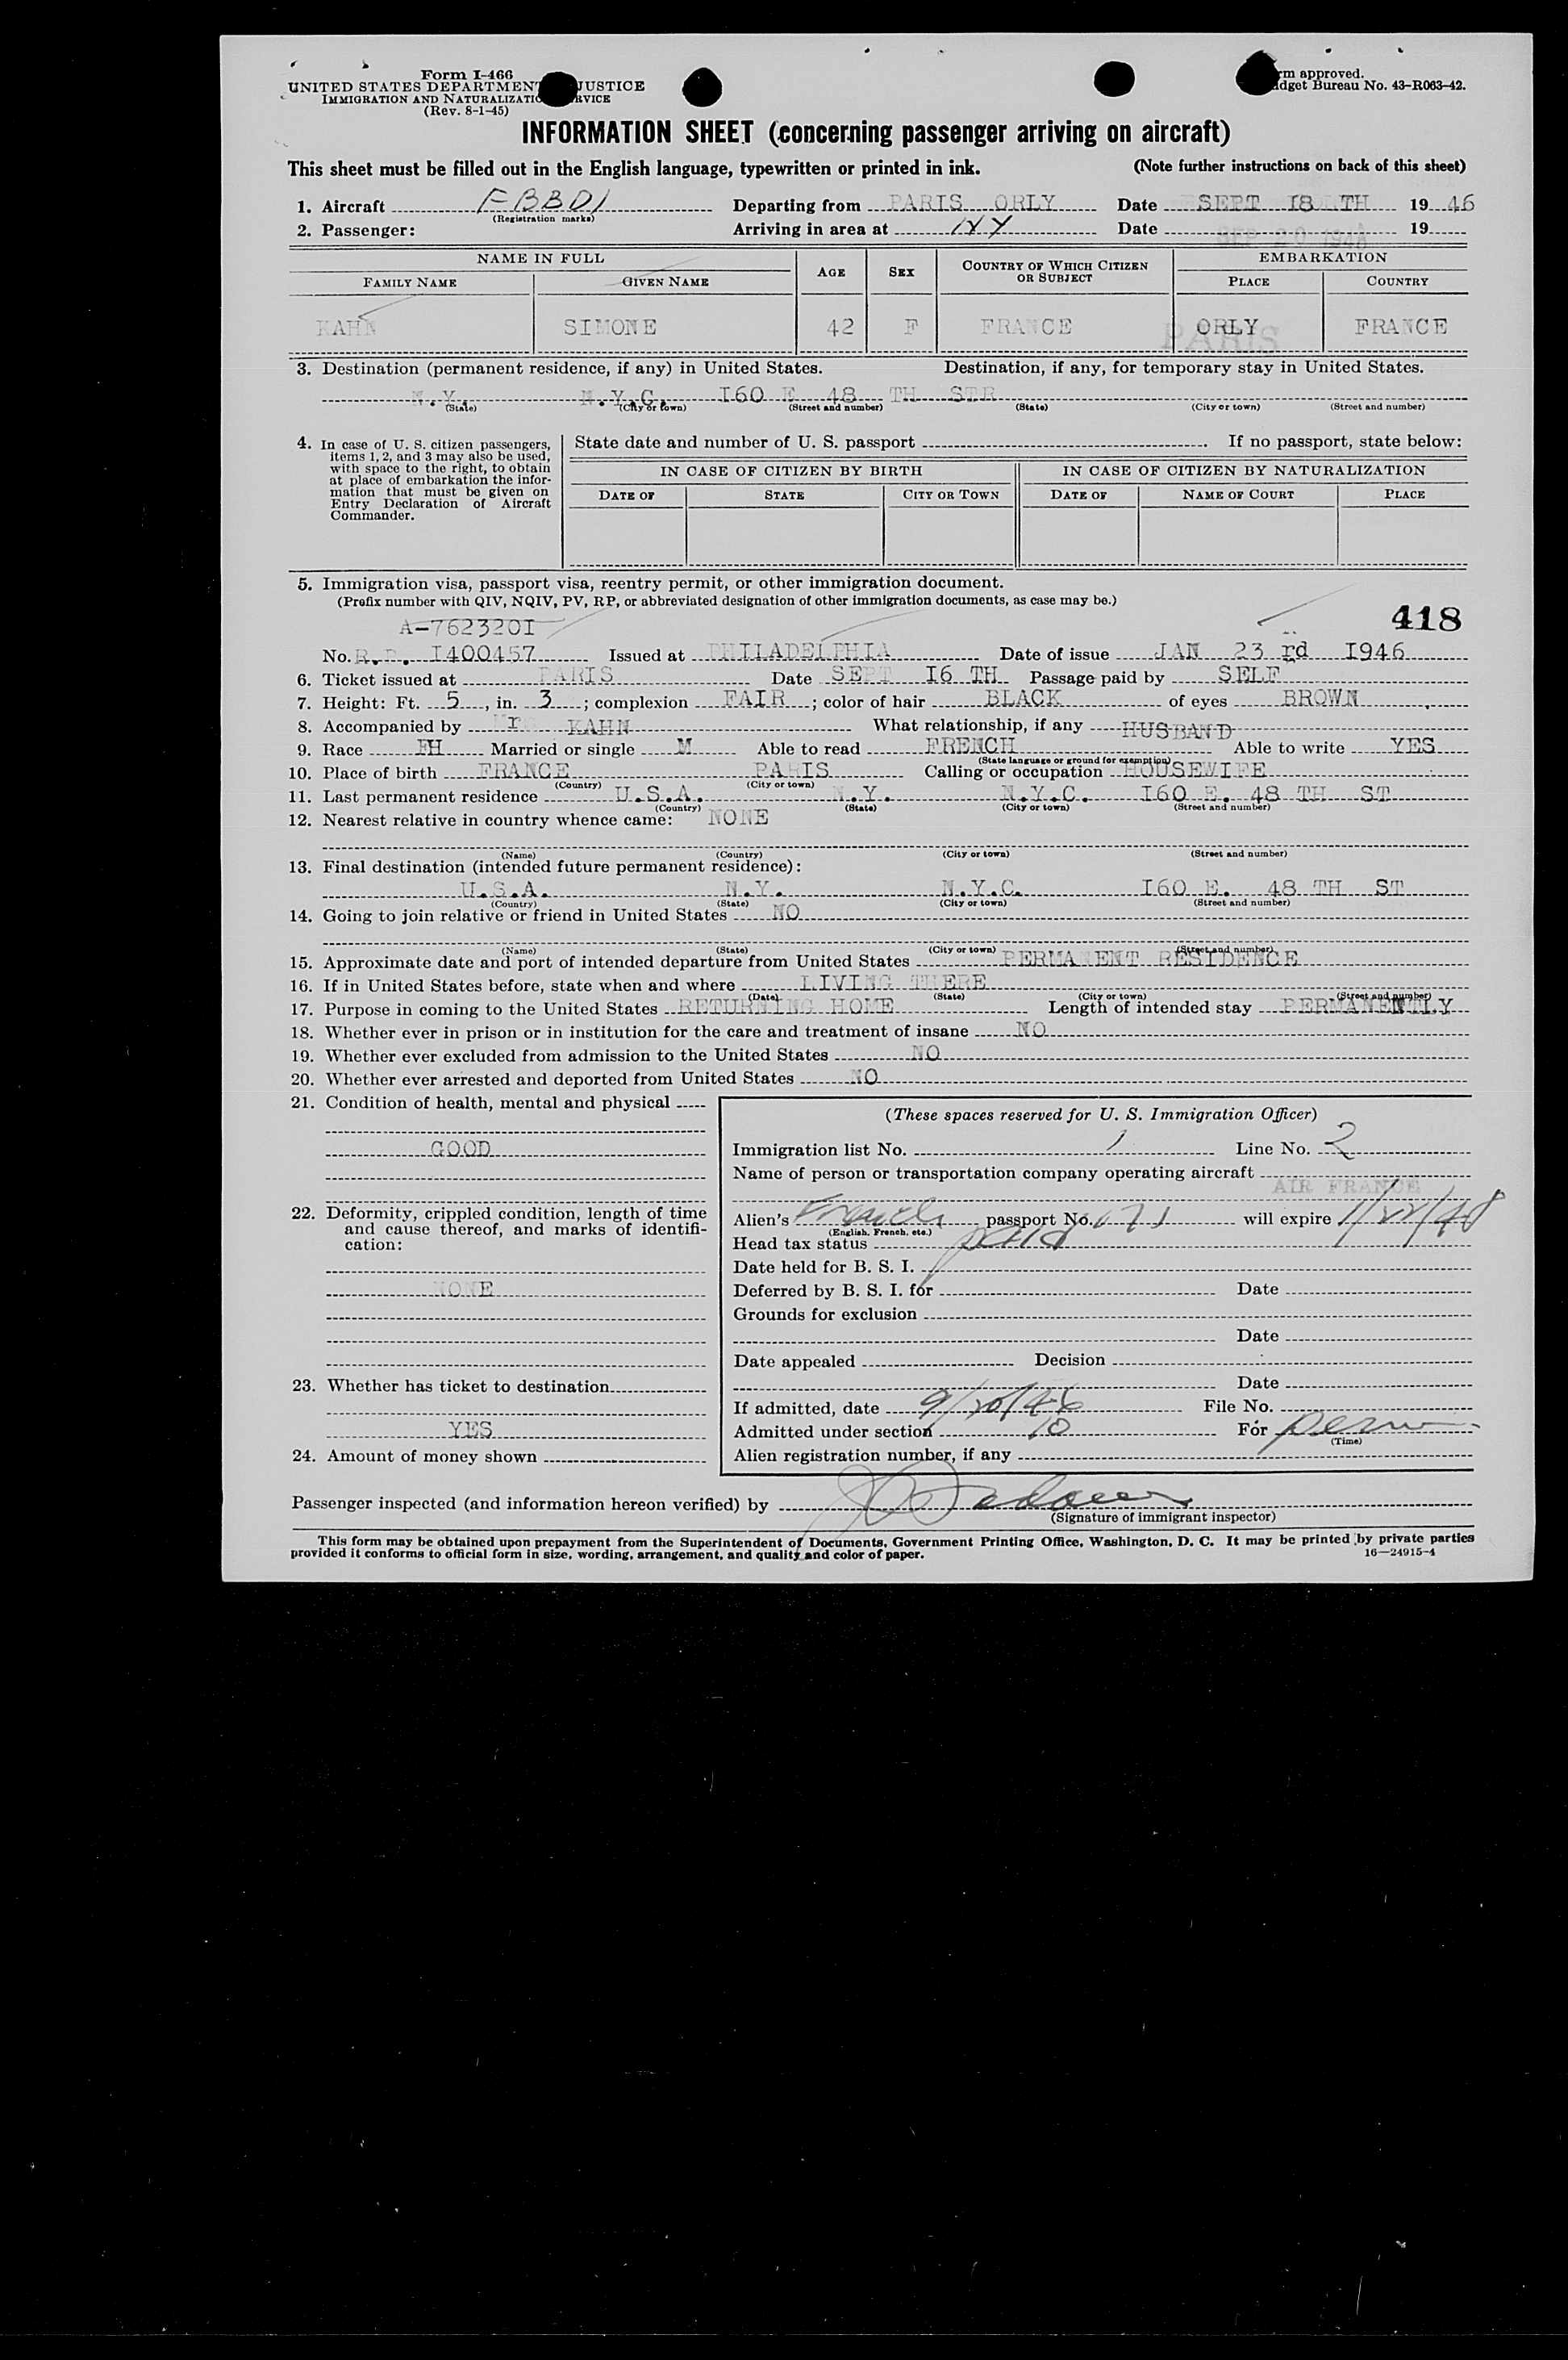 Form I-466
UNITED STATES DEPARTMENT JUSTICE
IMMIGRATION AND NATURALIZATION SERVICE
(Rev. 8-1-45)
Form approved.
Budget Bureau No. 43-R063-42.
INFORMATION SHEET (concerning passenger arriving on aircraft)
This sheet must be filled out in the English language, typewritten or printed in ink. (Note further instructions on back of this sheet)
1. Aircraft FBBDI Departing from PARIS ORLY Date SEPT I8 TH 19 46
(Registration marks)
2. Passenger: Arriving in area at Date SEP 20 1946 19
NAME IN FULL AGE SEX COUNTRY OF WHICH CITIZEN OR SUBJECT EMBARKATION
FAMILY NAME GIVEN NAME PLACE COUNTRY
KAHN SIMONE 42 F FRANCE ORLY PARIS FRANCE
3. Destination (permanent residence, if any) in United States. Destination, if any, for temporary stay in United States.
N.Y. N.Y.C. I60 E 48 TH STR
(State) (City or town) (Street and number) (State) (City or town) (Street and number)
4. In case of U. S. citizen passengers, items 1, 2, and 3 may also be used, with space to the right, to obtain at place of embarkation the information that must be given on Entry Declaration of Aircraft Commander.
State date and number of U. S. passport If no passport, state below:
IN CASE OF CITIZEN BY BIRTH IN CASE OF CITIZEN BY NATURALIZATION
DATE OF STATE CITY OR TOWN DATE OF NAME OF COURT PLACE
5. Immigration visa, passport visa, reentry permit, or other immigration document.
(Prefix number with QIV, NQIV, PV, RP, or abbreviated designation of other immigration documents, as case may be.)
A-762320I 418
No. R.P. I400457 Issued at PHILADELPHIA Date of issue JAN 23 rd I946
6. Ticket issued at PARIS Date SEPT I6 TH Passage paid by SELF
7. Height: Ft. 5, in. 3; complexion FAIR; color of hair BLACK of eyes BROWN
8. Accompanied by Mr KAHN What relationship, if any HUSBAND
9. Race FH Married or single M Able to read FRENCH Able to write YES
(State language or ground for exemption)
10. Place of birth FRANCE PARIS Calling or occupation HOUSEWIFE
(Country) (City or town)
11. Last permanent residence U.S.A. N.Y. N.Y.C. I60 E. 48 TH ST
(Country) (State) (City or town) (Street and number)
12. Nearest relative in country whence came: NONE
(Name) (Country) (City or town) (Street and number)
13. Final destination (intended future permanent residence):
U.S.A. N.Y. N.Y.C. I60 E. 48 TH ST
(Country) (State) (City or town) (Street and number)
14. Going to join relative or friend in United States NO
(Name) (State) (City or town) (Street and number)
15. Approximate date and port of intended departure from United States PERMANENT RESIDENCE
16. If in United States before, state when and where LIVING THERE
(Date) (State) (City or town) (Street and number)
17. Purpose in coming to the United States RETURNING HOME Length of intended stay PERMANENTLY
18. Whether ever in prison or in institution for the care and treatment of insane NO
19. Whether ever excluded from admission to the United States NO
20. Whether ever arrested and deported from United States NO
21. Condition of health, mental and physical
GOOD
22. Deformity, crippled condition, length of time and cause thereof, and marks of identification:
NONE
23. Whether has ticket to destination
YES
24. Amount of money shown
(These spaces reserved for U. S. Immigration Officer)
Immigration list No. 1 Line No. 2
Name of person or transportation company operating aircraft
AIR FRANCE
Alien's French passport No. 171 will expire 1/22/48
(English, French, etc.)
Head tax status paid
Date held for B. S. I.
Deferred by B. S. I. for Date
Grounds for exclusion
Date
Date appealed Decision
Date
If admitted, date 9/20/46 File No.
Admitted under section 10 For perm
(Time)
Alien registration number, if any
Passenger inspected (and information hereon verified) by
(Signature of immigrant inspector)
This form may be obtained upon prepayment from the Superintendent of Documents, Government Printing Office, Washington, D. C. It may be printed by private parties
provided it conforms to official form in size, wording, arrangement, and quality and color of paper. 16—24915-4